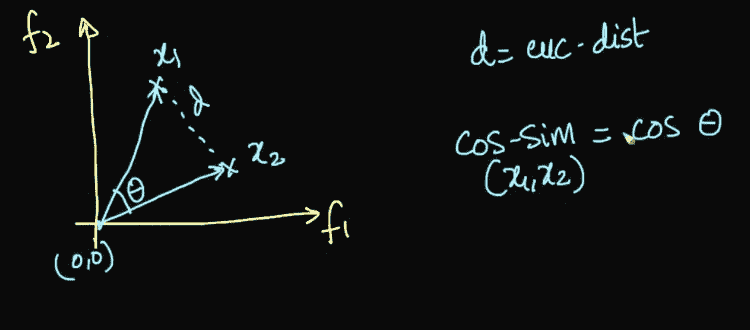 f₂
x₁
d
x₂
θ
f₁
(0,0)
d = euc-dist
cos-sim = cos θ
(x₁,x₂)